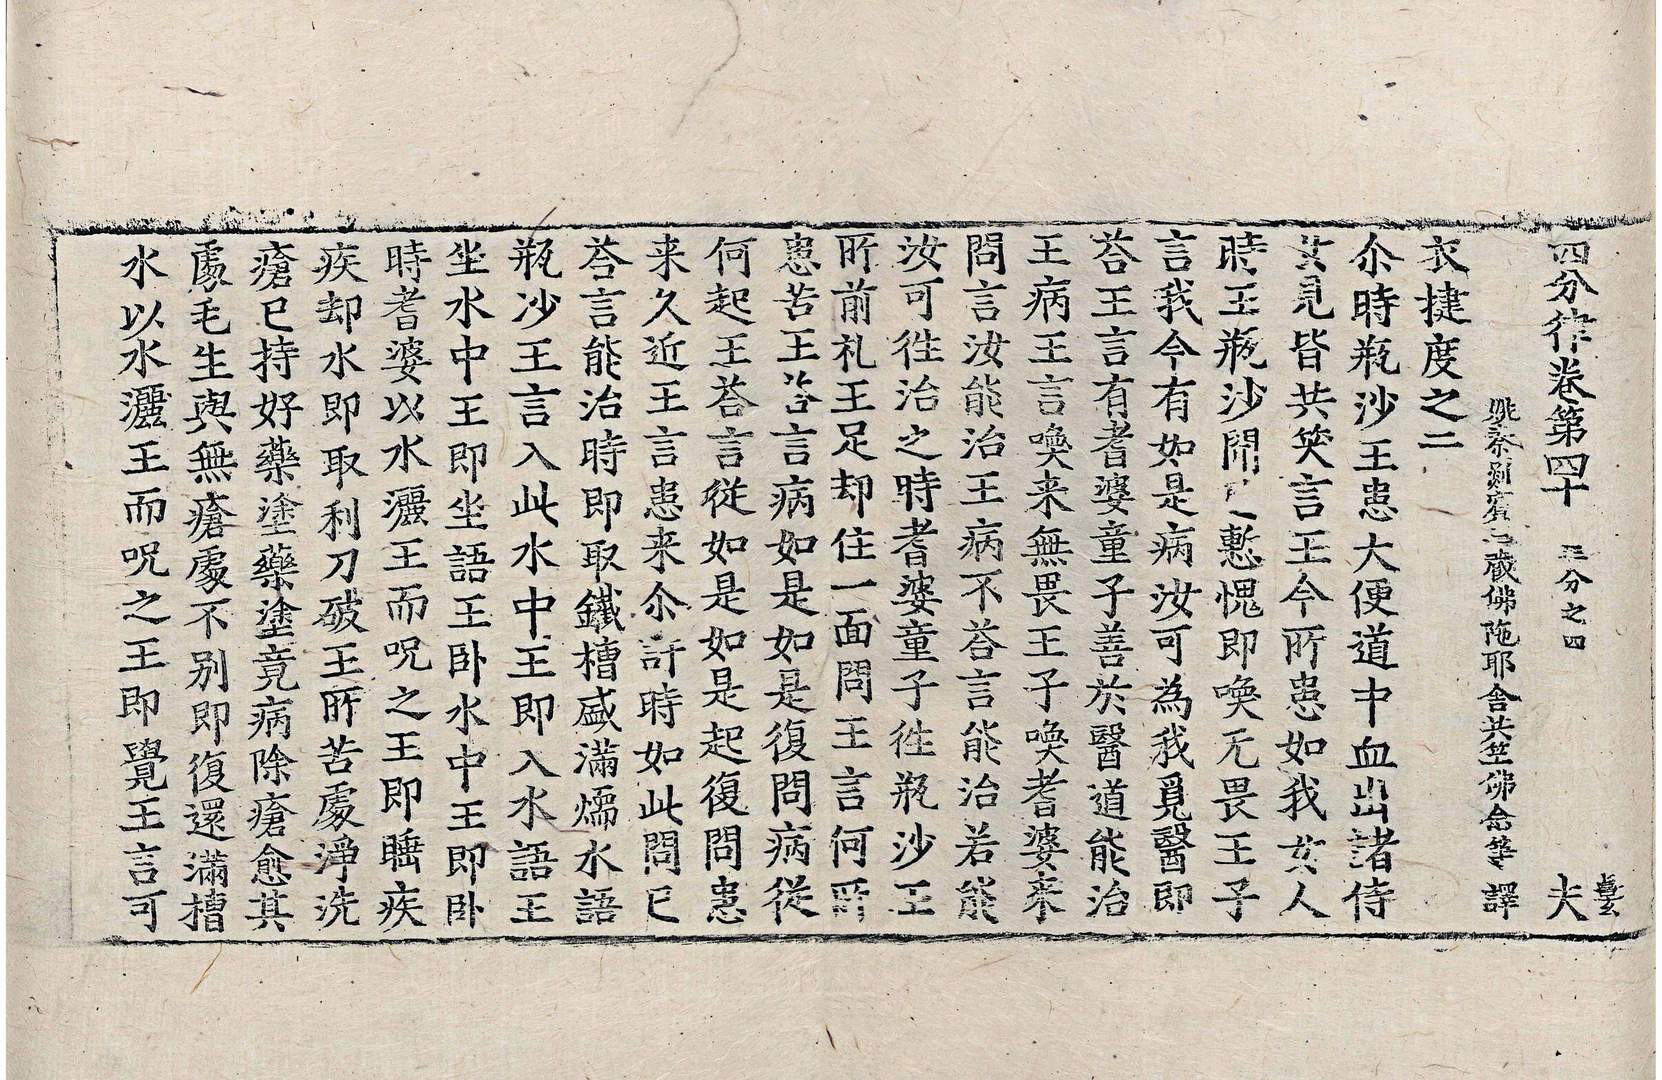 四分律卷第四十 三分之四 夫
姚秦罽賓三藏佛陁耶舍共竺佛念等譯
衣揵度之二
尒時瓶沙王患大便道中血出諸侍
女見皆共笑言王今所患如我女人
時王瓶沙聞慙愧即喚无畏王子
言我今有如是病汝可為我覓醫即
荅王言有耆婆童子善於醫道能治
王病王言喚来無畏王子喚耆婆来
問言汝能治王病不荅言能治若能
汝可徃治之時耆婆童子徃瓶沙王
所前礼王足却住一面問王言何所
患苦王荅言病如是如是復問病從
何起王荅言從如是如是起復問患
来久近王言患来尒許時如此問已
荅言能治時即取鐵槽盛滿煗水語
瓶沙王言入此水中王即入水語王
坐水中王即坐語王卧水中王即卧
時耆婆以水灑王而呪之王即睡疾
疾却水即取利刀破王所苦處淨洗
瘡已持好藥塗藥塗竟病除瘡愈其
處毛生與無瘡處不別即復還滿槽
水以水灑王而呪之王即覺王言可